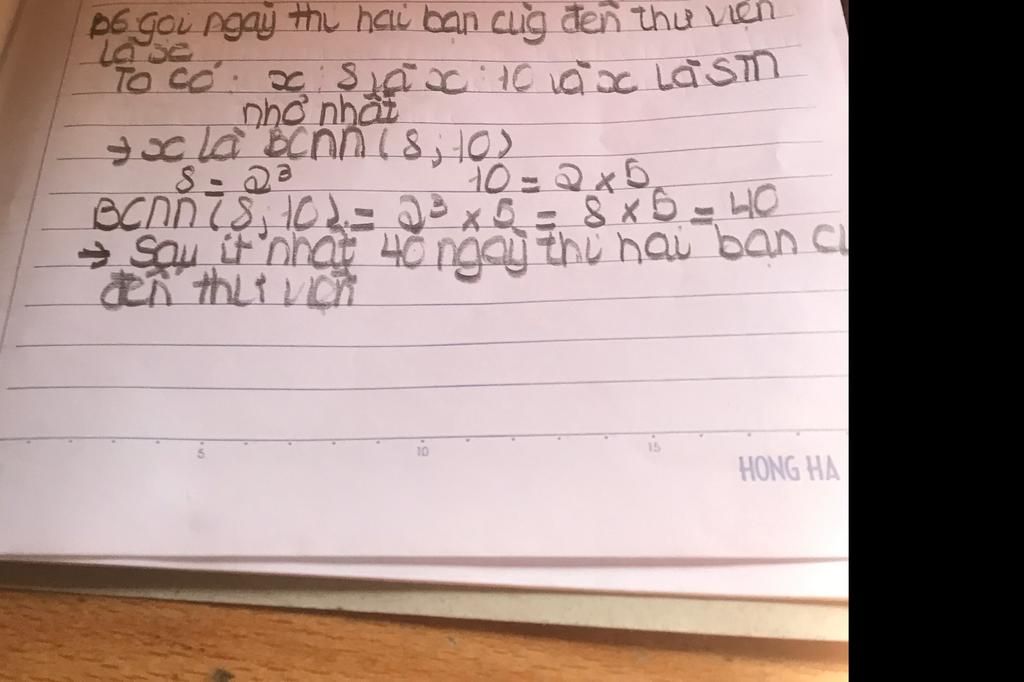 B6 gọi ngày thì hai bạn cùg đến thư viện
là x
Ta có: x : 8 là x : 10 là x là sm
nhỏ nhất
→ x là BCNN (8; 10)
8 = 2³ 10 = 2 x 5
BCNN (8; 10) = 2³ x 5 = 8 x 5 = 40
→ Sau ít nhất 40 ngày thì hai bạn cù
đến thư viện
5 10 15
HONG HA